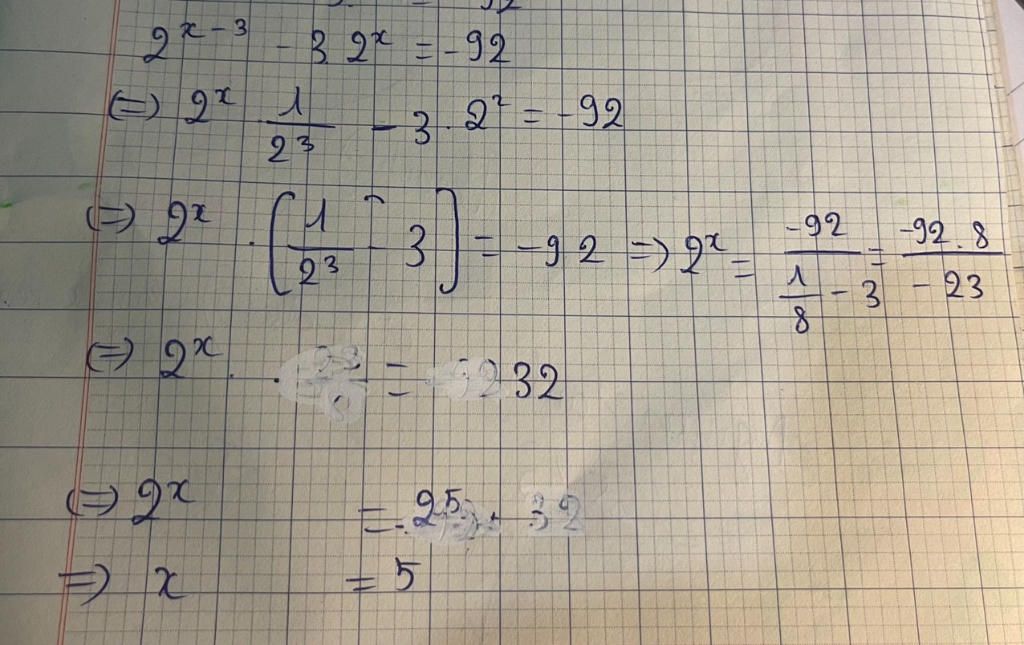 2^{x-3} - 3 2^x = -92
(=) 2^x \frac{1}{2^3} - 3 . 2^2 = -92
(=) 2^x . (\frac{1}{2^3} - 3) = -92 => 2^x = \frac{-92}{\frac{1}{8} - 3} = \frac{-92 . 8}{-23}
(=) 2^x . = 32
(=) 2^x = 2^5
=) x = 5